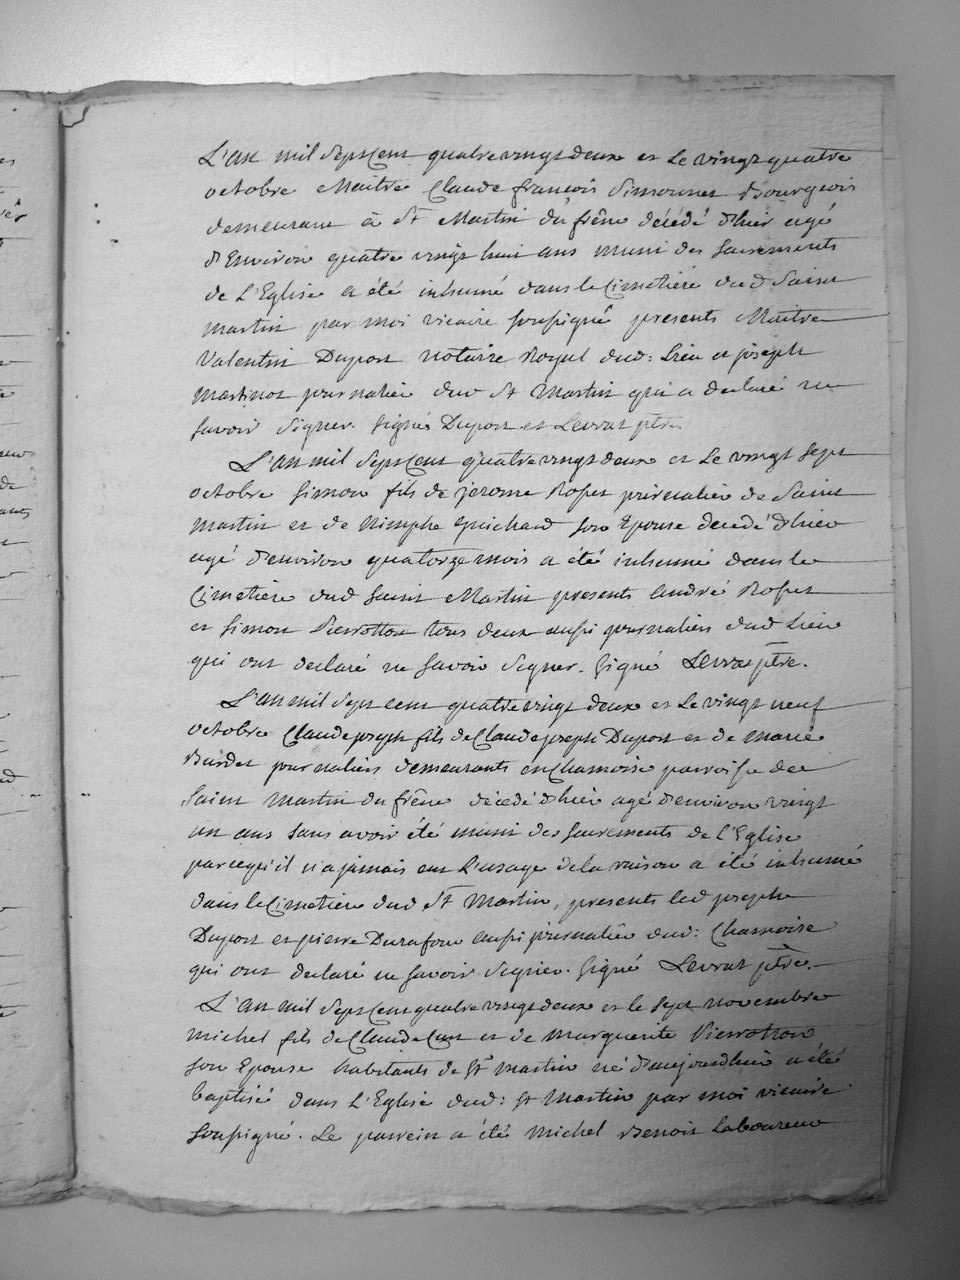 L'an mil Sept Cent quatre vingt deux et Le vingt quatre
octobre Maitre Claude françois Simonnet Bourgeois
demeurant à St Martin du frêne décédé d'hier agé
d'Environ quatre vingt huit ans muni des Sacrements
de L'Eglise a été inhumé dans le Cimetière dud Saint
Martin par moi vicaire soussigné presents Maitre
Valentin Dupont notaire Royal dud: Lieu et joseph
Martinot journalier dud St Martin qui a declaré ne
savoir Signer. Signé Dupont et Levrat ptre.
L'An mil Sept Cent quatre vingt deux et Le vingt Sept
octobre Simon fils de jerome Rosset journalier de Saint
Martin et de Nimphe son Epouse decedé d'hier
agé d'environ quatorze mois a été inhumé dans le
Cimetière dud Saint Martin presents André Rosset
et Simon Pierrotton tous deux aussi journaliers dud Lieu
qui ont declaré ne Savoir Signer. Signé Levrat ptre.
L'an mil Sept cent quatre vingt deux et Le vingt neuf
octobre Claude joseph fils de Claude joseph Dupont et de Marie
Burdet journaliers demeurants en Chamoise parroisse de
Saint Martin du frêne décédé d'hier agé d'environ vingt
un ans sans avoir été muni des Sacrements de l'Eglise
parcequ'il n'a jamais eut L'usage de la raison a été inhumé
dans le Cimetiere dud St Martin, presents led joseph
Dupont et pierre Durafour aussi journalier dud: Chamoise
qui ont declaré ne Savoir Signer. Signé Levrat ptre.
L'An mil Sept Cent quatre vingt deux et le Sept novembre
michel fils de Claude et de marguerite Pierrotton
son Epouse habitants de St martin né d'aujourdhui a été
baptisé dans L'Eglise dud: St Martin par moi vicaire
Soussigné. Le parrein a été Michel Benoit Laboureur